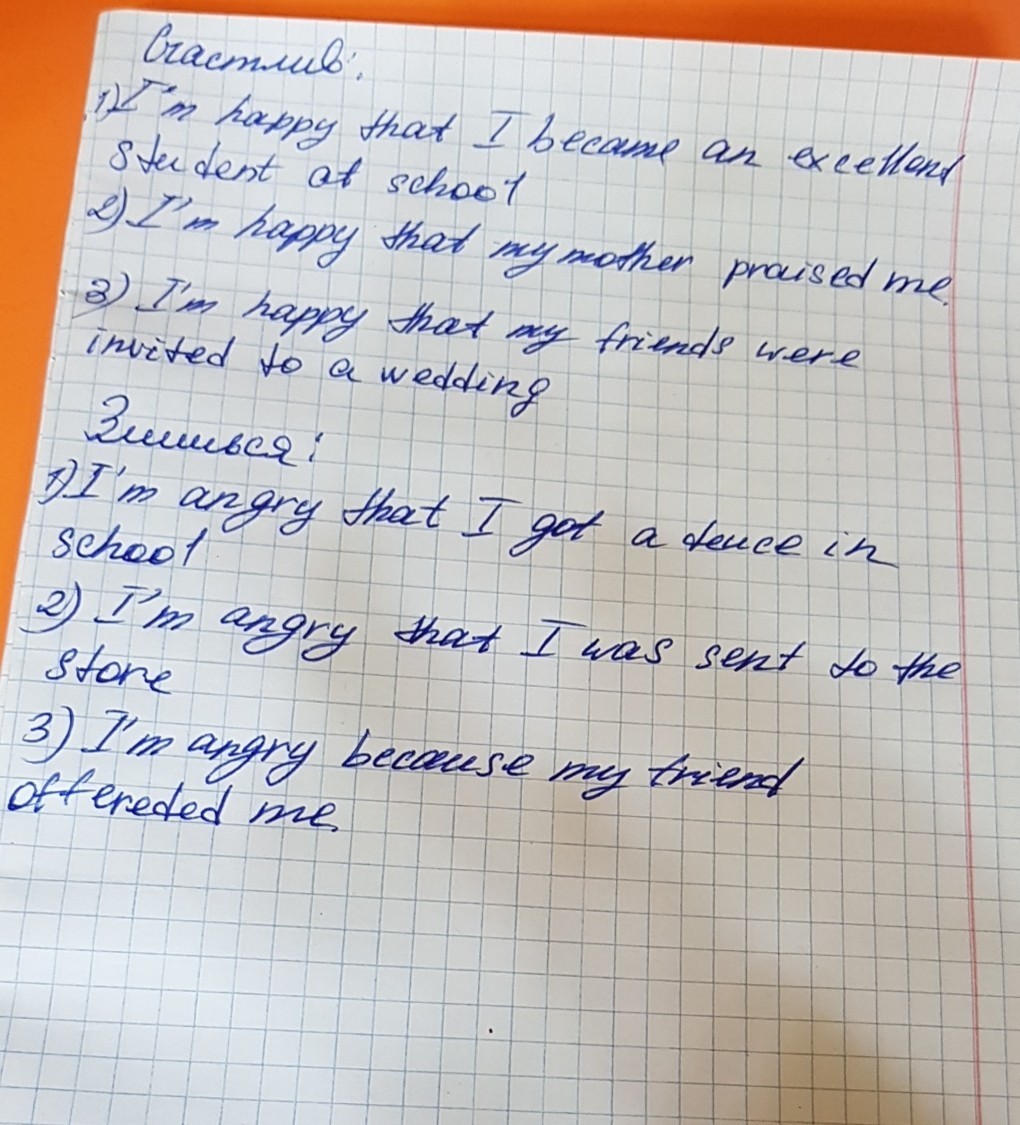 Счастлив:
1) I'm happy that I became an excellent
student at school
2) I'm happy that my mother praised me.
3) I'm happy that my friends were
invited to a wedding
Злишься:
1) I'm angry that I got a deuce in
school
2) I'm angry that I was sent to the
store
3) I'm angry because my friend
offereded me.